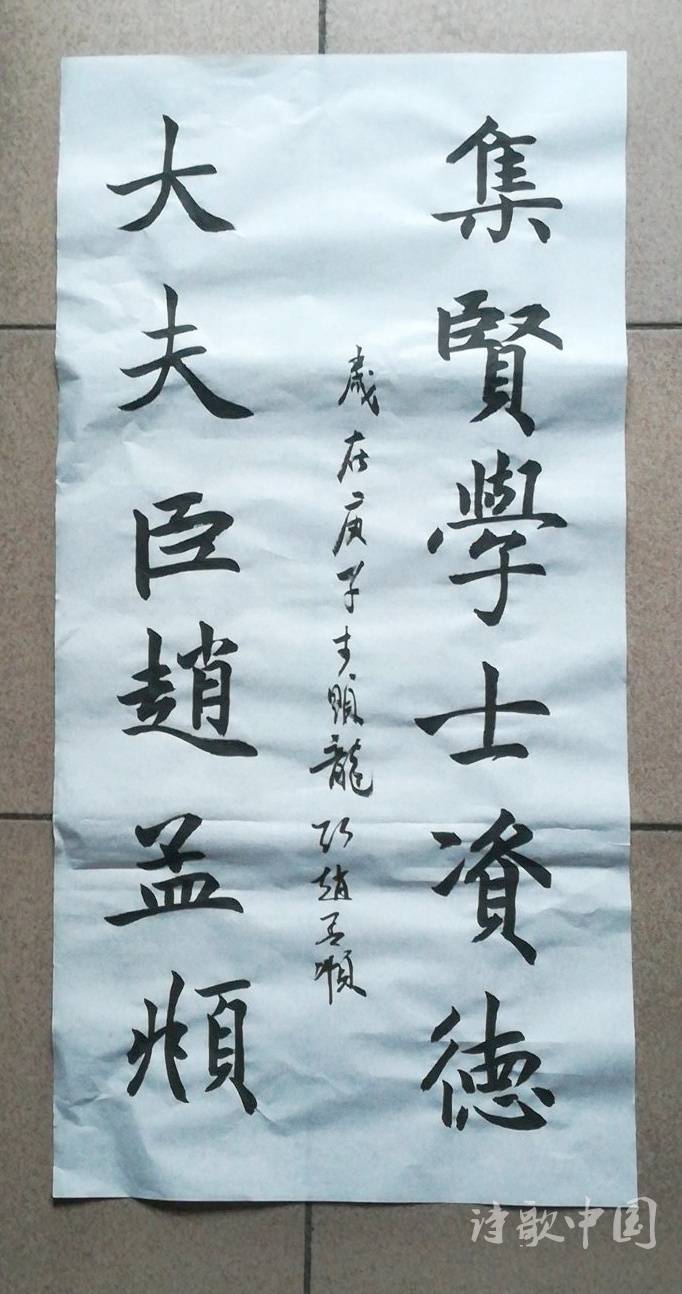 集賢學士資德
歲在庚子李顯龍臨趙孟頫
大夫臣趙孟頫
诗歌中国